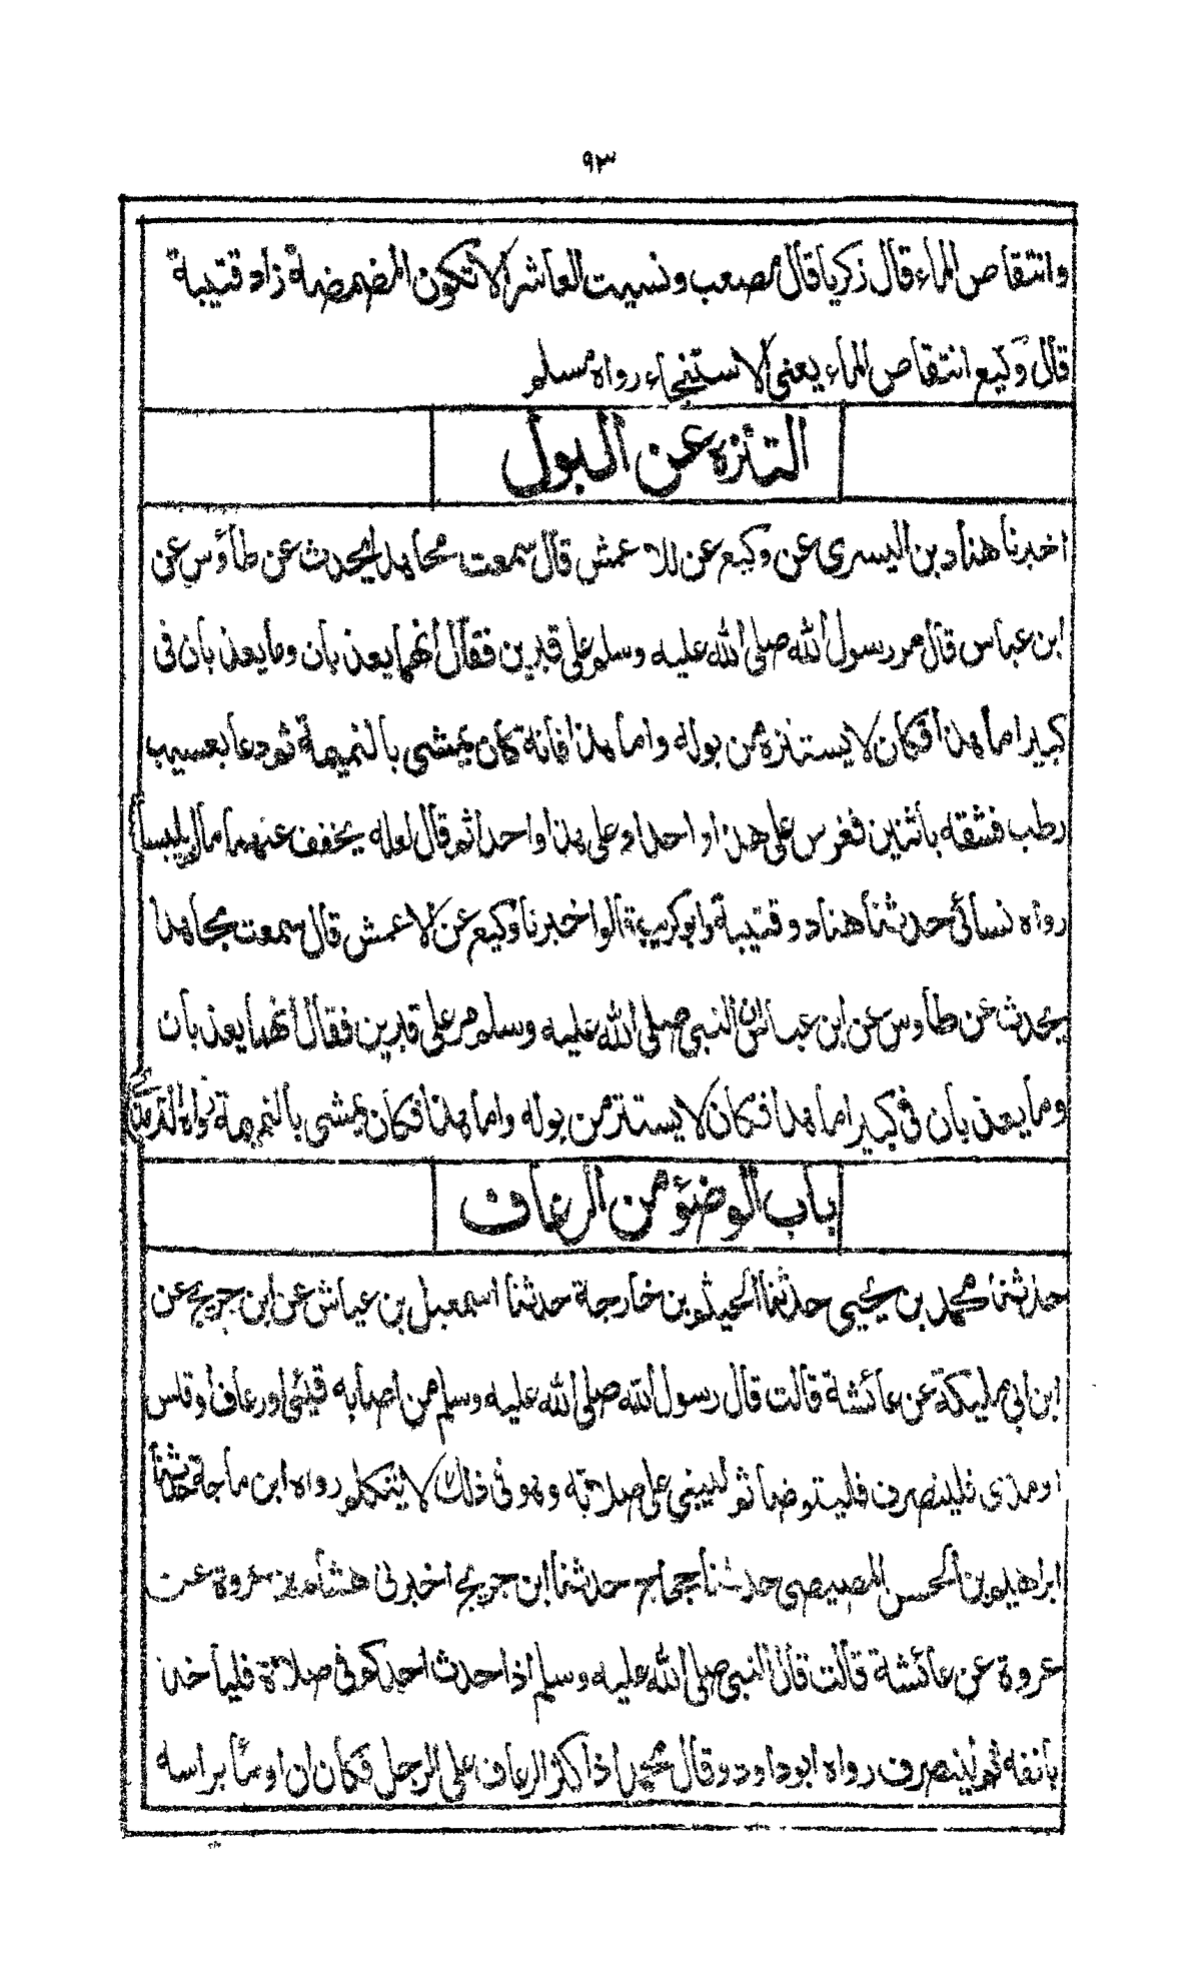 ٩٣
وانتقاص الماء قال زكريا قال مصعب ونسيت العاشر الا تكون المضمضة زاد قتيبة
قال وكيع انتقاص الماء يعني الاستنجاء رواه مسلم
التنزه عن البول
اخبرنا هناد بن السري عن وكيع عن الاعمش قال سمعت مجاهدا يحدث عن طاؤس عن
ابن عباس قال مر رسول الله صلى الله عليه وسلم على قبرين فقال انهما يعذبان وما يعذبان فى
كبير اما هذا فكان لا يستنزه من بوله واما هذا فانه كان يمشى بالنميمة ثم دعا بعسيب
رطب فشقه باثنين فغرس على هذا واحدا وعلى هذا واحدا ثم قال لعله يخفف عنهما مالم ييبسا
رواه نسائى حدثنا هناد وقتيبة وابو كريب قالوا اخبرنا وكيع عن الاعمش قال سمعت مجاهدا
يحدث عن طاوس عن ابن عباس ان النبى صلى الله عليه وسلم مر على قبرين فقال انهما يعذبان
وما يعذبان فى كبير اما هذا فكان لا يستتر من بوله واما هذا فكان يمشى بالنميمة رواه الترمذى
باب الوضؤ من الرعاف
حدثنا محمد بن يحيى حدثنا الهيثم بن خارجة حدثنا اسمعيل بن عياش عن ابن جريج عن
ابن ابى مليكة عن عائشة قالت قال رسول الله صلى الله عليه وسلم من اصابه قيئى اورعاف اوقلس
او مذى فلينصرف فليتوضا ثم ليبنى على صلاته وهو فى ذلك لا يتكلم رواه ابن ماجة حدثنا
ابراهيم بن الحسن المصيصى حدثنا حجاج حدثنا ابن جريج اخبرنى هشام بن عروة عن
عروة عن عائشة قالت قال النبى صلى الله عليه وسلم اذا احدث احدكم فى صلاة فلياخذ
بانفه ثم لينصرف رواه ابوداود وقال محمد اذا كثر الرعاف على الرجل فكان ان اومأ براسه